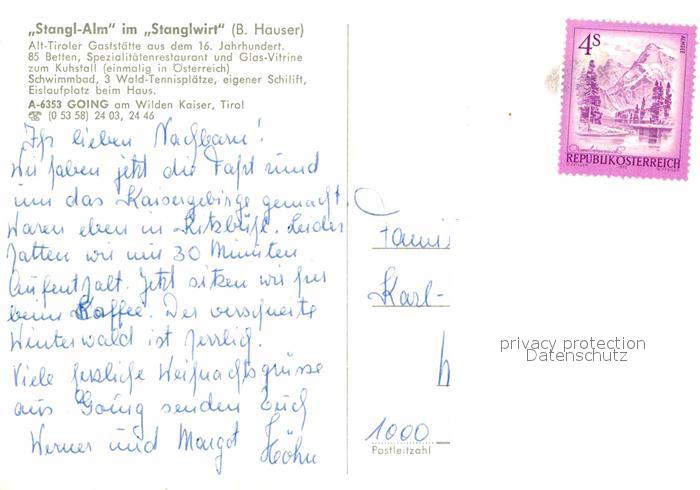 „Stangl-Alm“ im „Stanglwirt“ (B. Hauser)
Alt-Tiroler Gaststätte aus dem 16. Jahrhundert.
85 Betten, Spezialitätenrestaurant und Glas-Vitrine
zum Kuhstall (einmalig in Österreich)
Schwimmbad, 3 Wald-Tennisplätze, eigener Schilift,
Eislaufplatz beim Haus.
A-6353 GOING am Wilden Kaiser, Tirol
☎ (0 53 58) 24 03, 24 46
Ihr lieben Nachbarn!
Wir haben jetzt die Fahrt rund
um das Kaisergebirge gemacht.
Waren eben in Kitzbühl. Leider
hatten wir nur 30 Minuten
Aufenthalt. Jetzt sitzen wir hier
beim Kaffee. Der verschneite
Winterwald ist herrlich.
Viele herzliche Weihnachtsgrüsse
aus Going senden Euch
Werner und Margot
Höhn
4S
ALMSEE
REPUBLIK ÖSTERREICH
Karl-
privacy protection
Datenschutz
1000
Postleitzahl